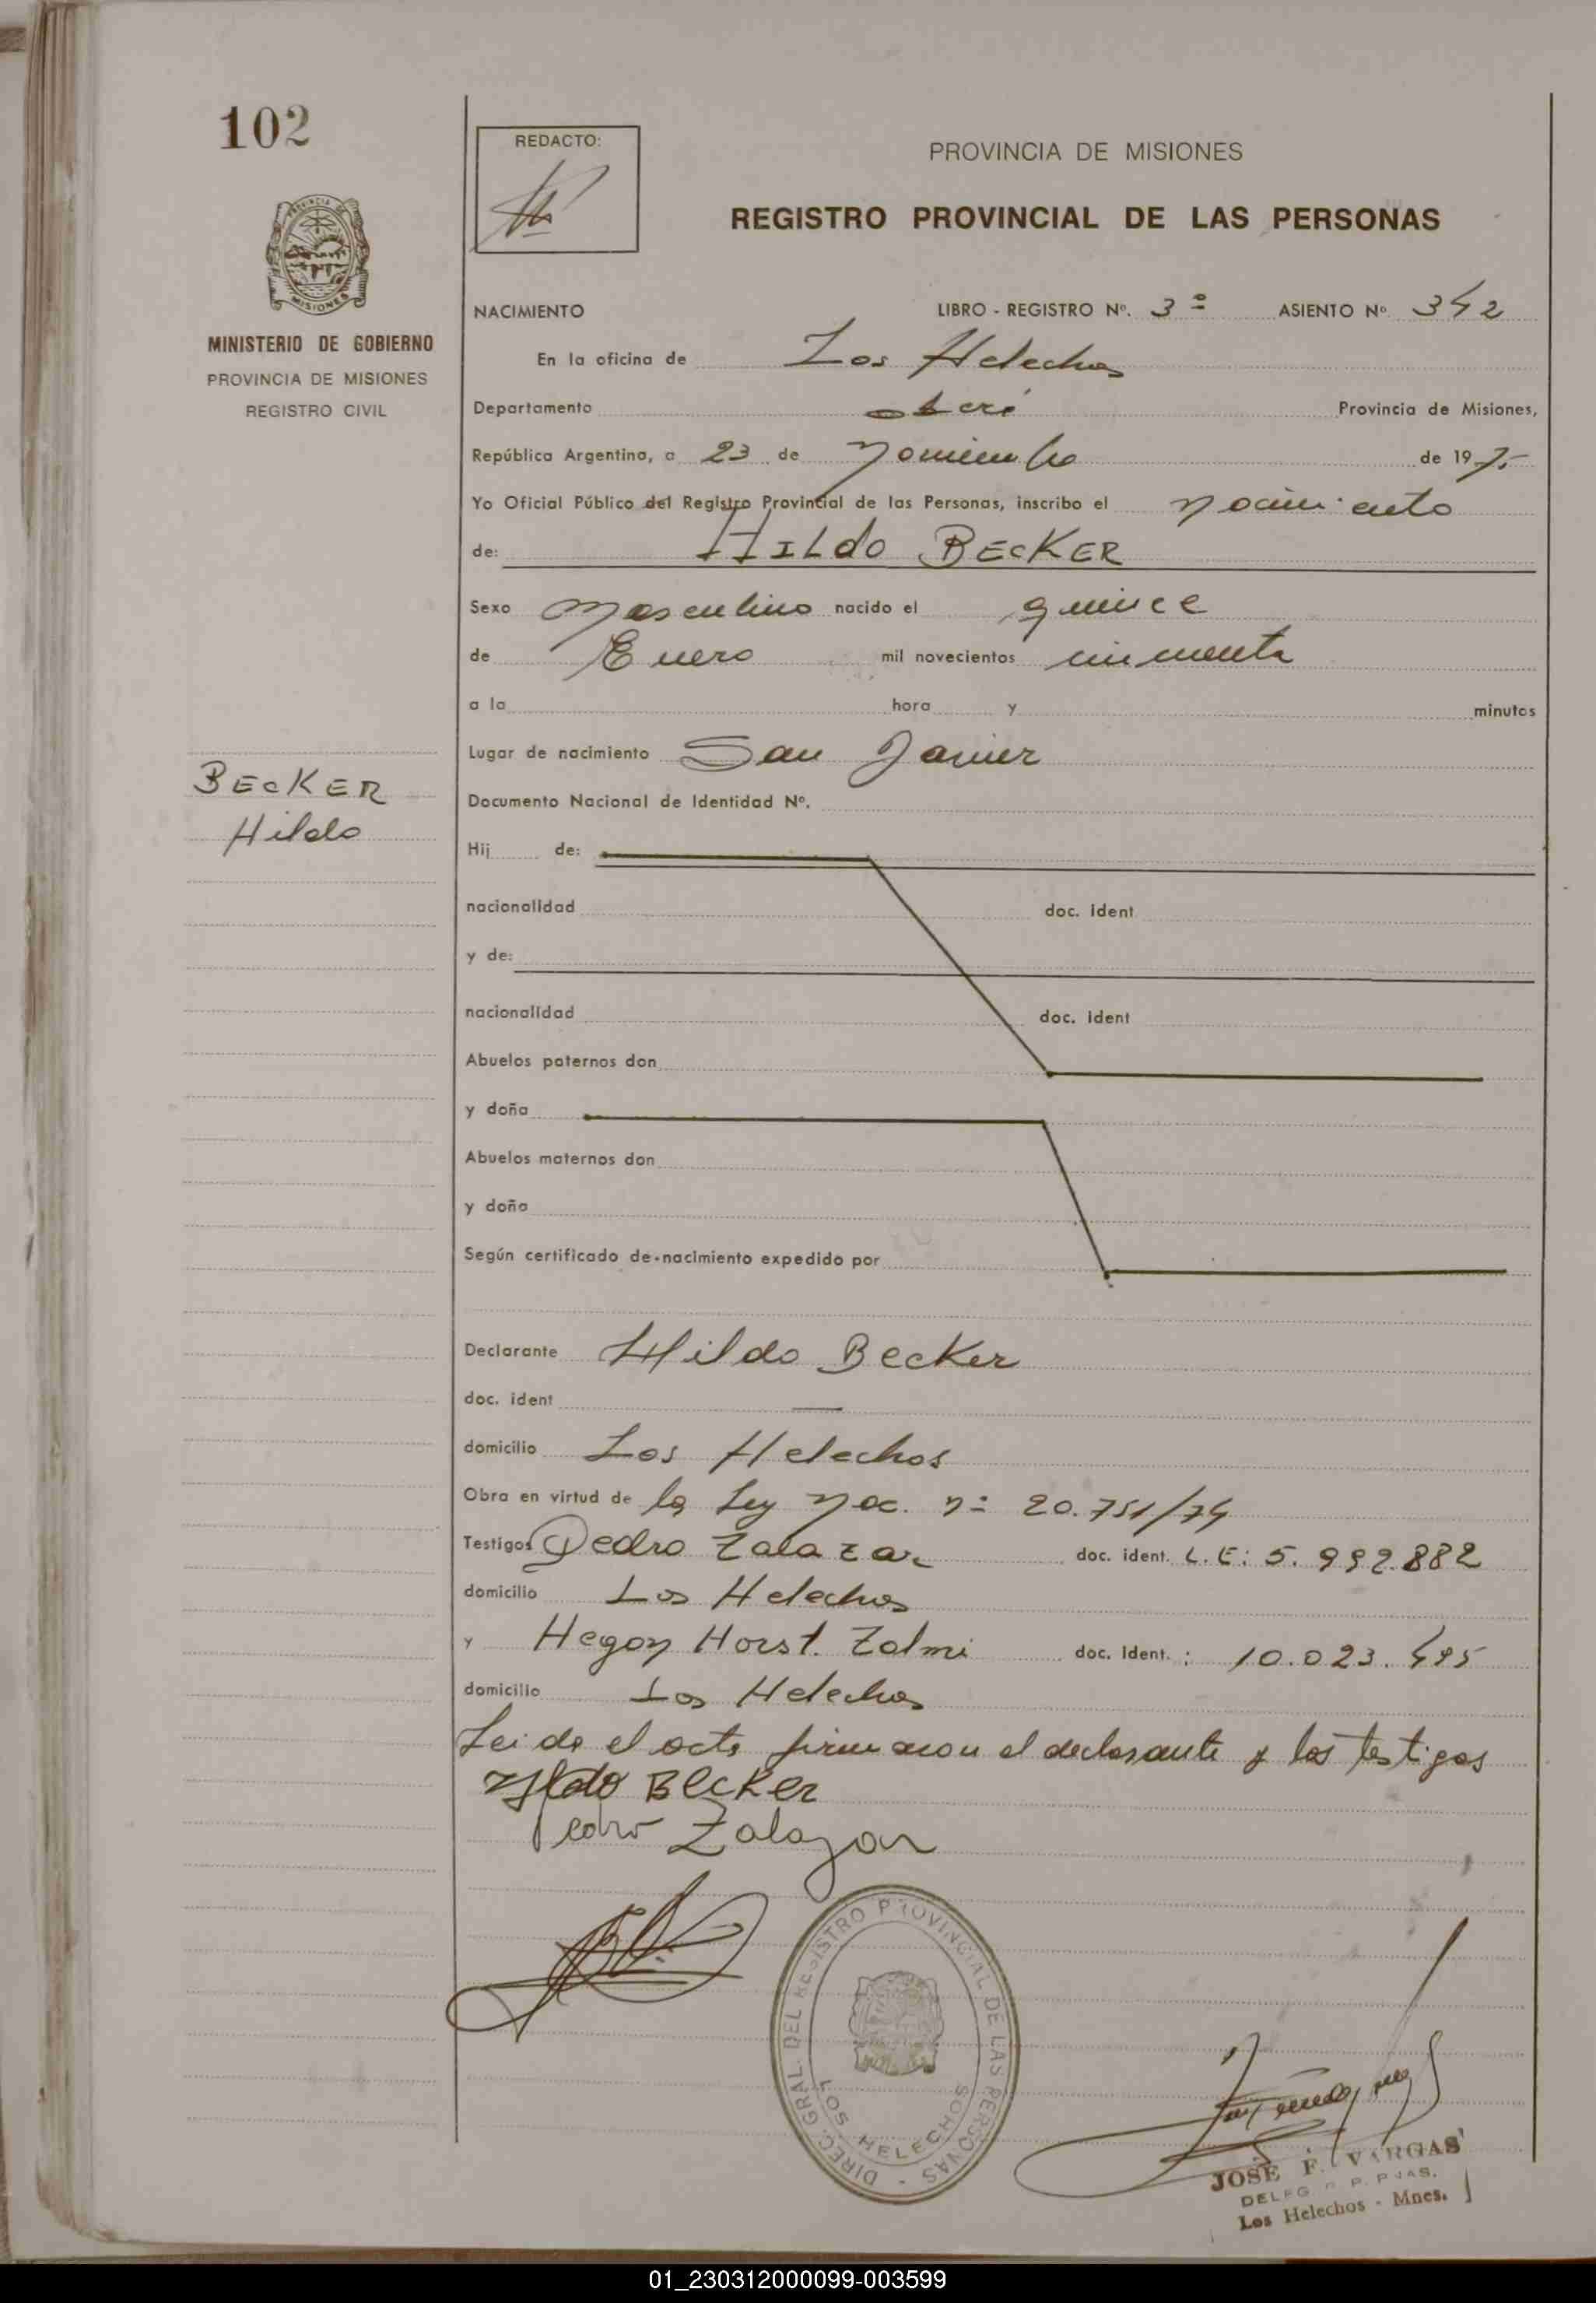 102
REDACTO:
PROVINCIA DE MISIONES
REGISTRO PROVINCIAL DE LAS PERSONAS
MISIONES
MINISTERIO DE GOBIERNO
PROVINCIA DE MISIONES
REGISTRO CIVIL
NACIMIENTO LIBRO - REGISTRO Nº. 3º ASIENTO Nº 342
En la oficina de Los Helechos
Departamento oberá Provincia de Misiones,
República Argentina, a 23 de Noviembre de 1975
Yo Oficial Público del Registro Provincial de las Personas, inscribo el nacimiento
de: HILdo BECKER
Sexo Masculino nacido el quince
de Enero mil novecientos cincuenta
a la hora y minutos
Lugar de nacimiento San Javier
BECKER
Hildo
Documento Nacional de Identidad Nº.
Hij de:
nacionalidad doc. ident
y de:
nacionalidad doc. ident
Abuelos paternos don
y doña
Abuelos maternos don
y doña
Según certificado de nacimiento expedido por
Declarante Hildo Becker
doc. ident —
domicilio Los Helechos
Obra en virtud de la Ley Nac. nº 20.751/74
Testigos Pedro Zalazar doc. ident. L.E: 5.992.882
domicilio Los Helechos
y Hegon Horst. Zolmi doc. ident. : 10.023.495
domicilio Los Helechos
Leido el acto firmaron el declarante y los testigos
Hildo Becker
Pedro Zalazar
DIREC. GRAL. DEL REGISTRO PROVINCIAL DE LAS PERSONAS -
LOS HELECHOS
JOSÉ F. VARGAS
DELEG R. P. PNAS.
Los Helechos - Mnes.
01_230312000099-003599